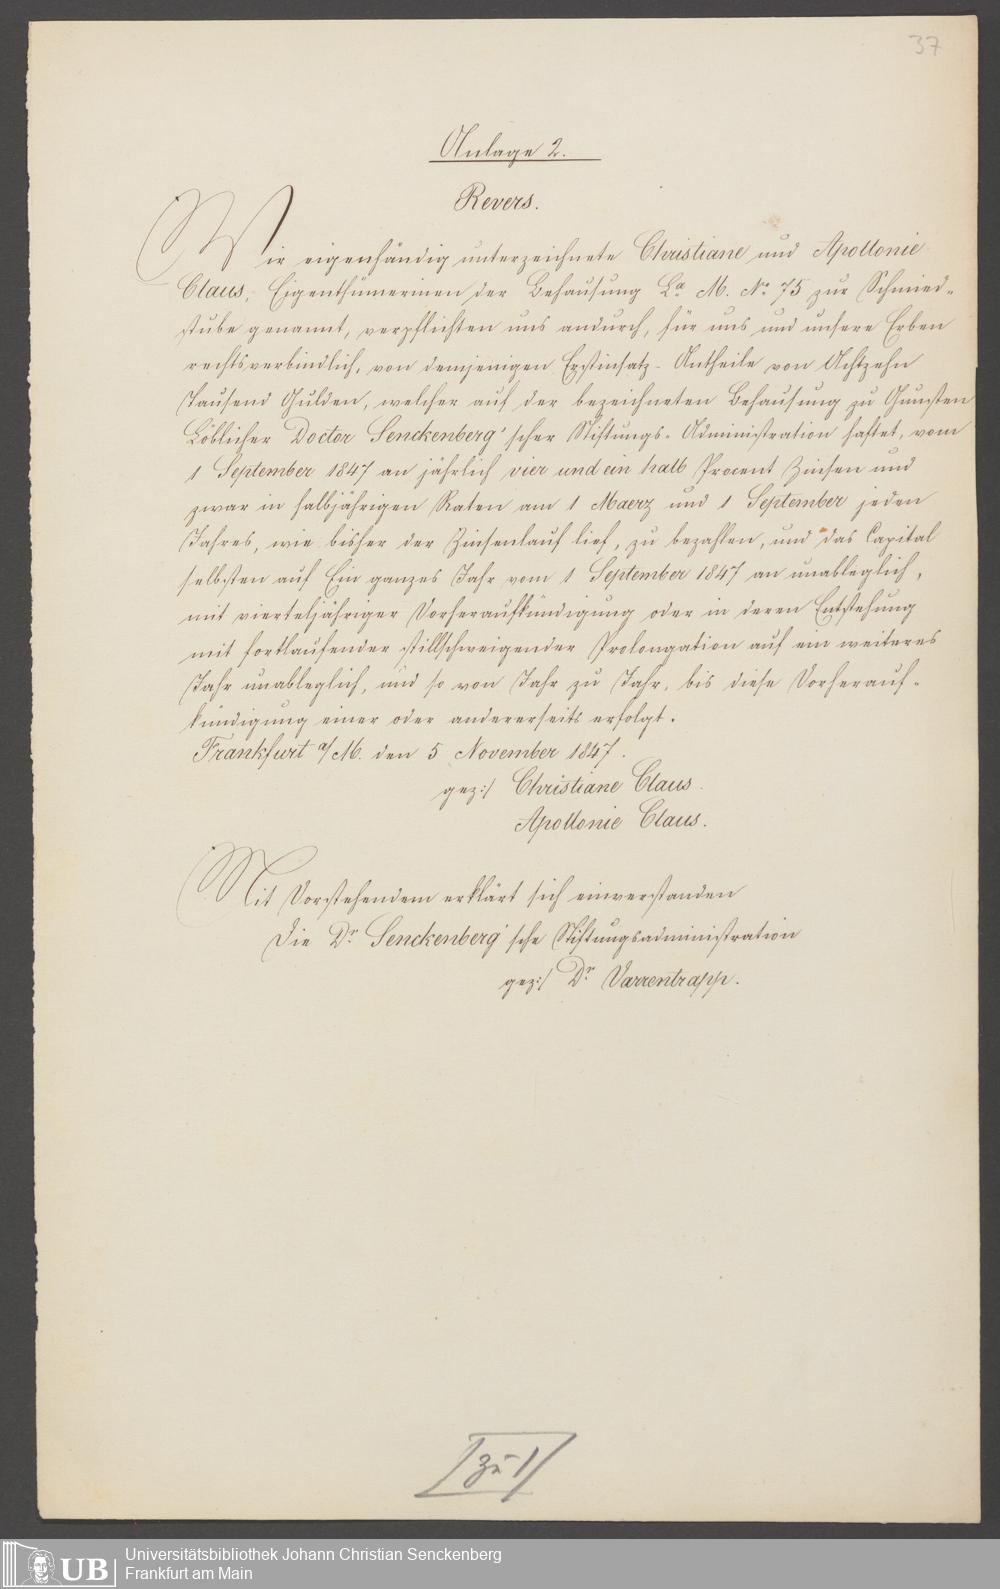 37
Anlage 2.
Revers.
Wir eigenhändig unterzeichnete Christiane und Apollonie
Claus, Eigenthümerinen der Behausung La. M. No. 75 zur Schmied-
stube genannt, verpflichten uns andurch, für uns und unsere Erben
rechtsverbindlich, von demjenigen Erstinsatz-Antheile von Achtzehn
Tausend Gulden, welcher auf der bezeichneten Behausung zu Gunsten
Löblicher Doctor Senckenberg'scher Stiftungs-Administration haftet, vom
1 September 1847 an jährlich vier und ein halb Procent Zinsen und
zwar in halbjährigen Raten am 1 Maerz und 1 September jeden
Jahres, wie bisher der Zinsenlauf lief, zu bezahlen, und das Capital
selbsten auf Ein ganzes Jahr vom 1 September 1847 an unableglich,
mit vierteljähriger Vorheraufkündigung oder in deren Entstehung
mit fortlaufender stillschweigender Prolongation auf ein weiteres
Jahr unableglich, und so von Jahr zu Jahr, bis diese Vorherauf-
kündigung einer oder andererseits erfolgt.
Frankfurt a/M. den 5 November 1847.
gez:/ Christiane Claus.
Apollonie Claus.
Mit Vorstehendem erklärt sich einverstanden
Die Dr. Senckenberg'sche Stiftungsadministration
gez:/ Dr. Varrentrapp.
zu 1
UB
Universitätsbibliothek Johann Christian Senckenberg
Frankfurt am Main